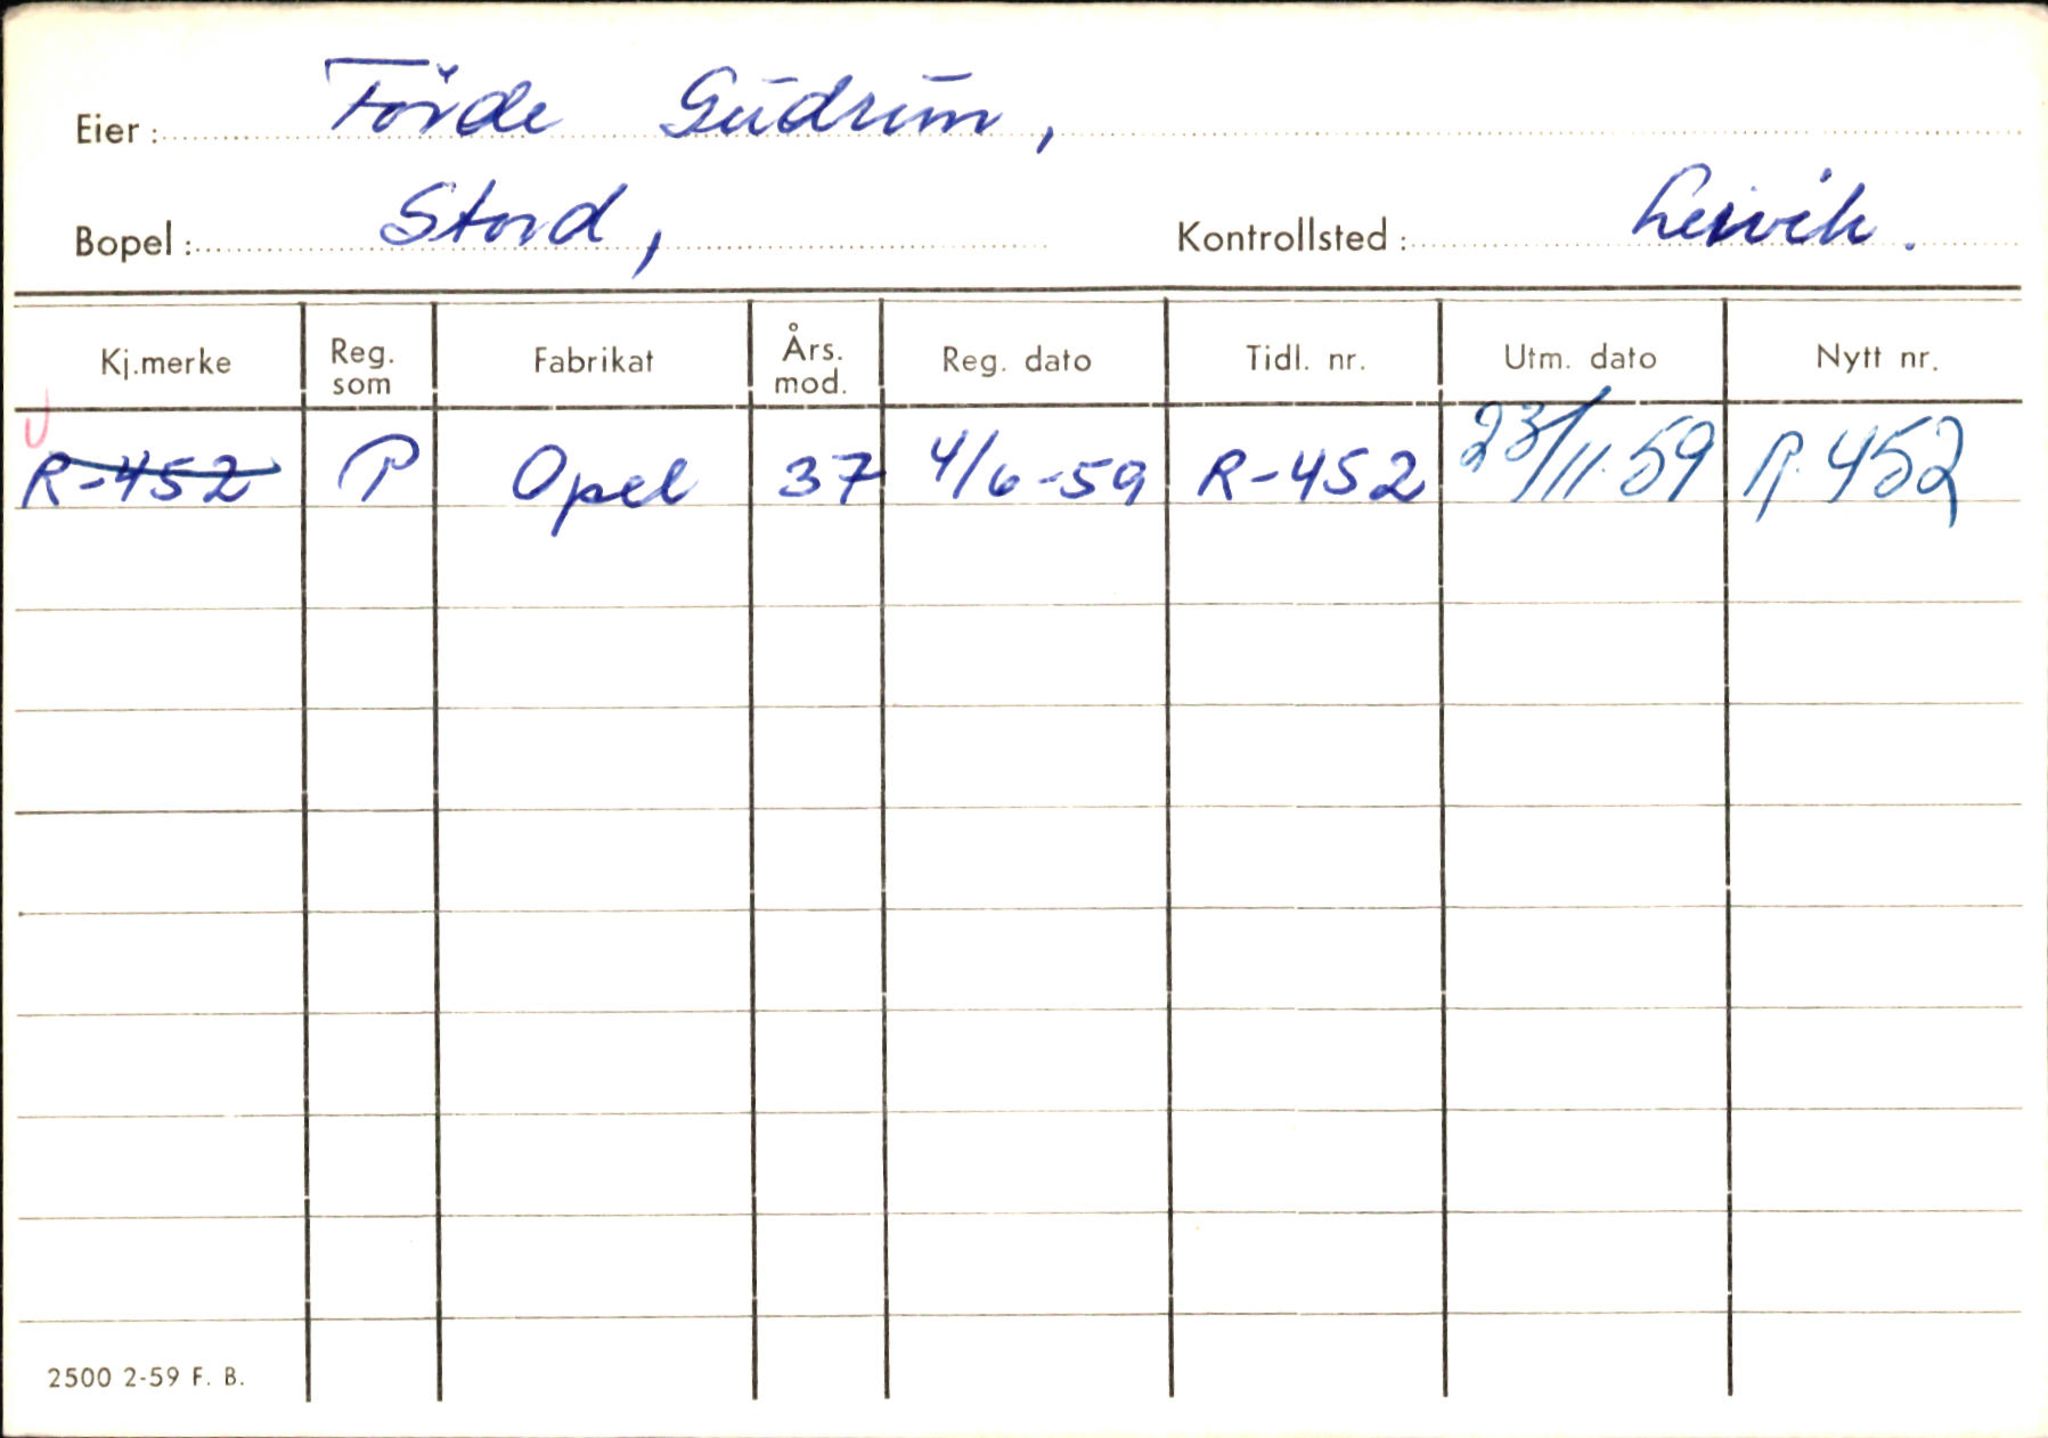 Eier: Förde Gudrun,
Bopel: Stord, Kontrollsted: Leirvik.
Kj.merke Reg. som Fabrikat Års. mod. Reg. dato Tidl. nr. Utm. dato Nytt nr.
R-452 P Opel 37 4/6-59 R-452 23/11-59 R-452
2500 2-59 F. B.